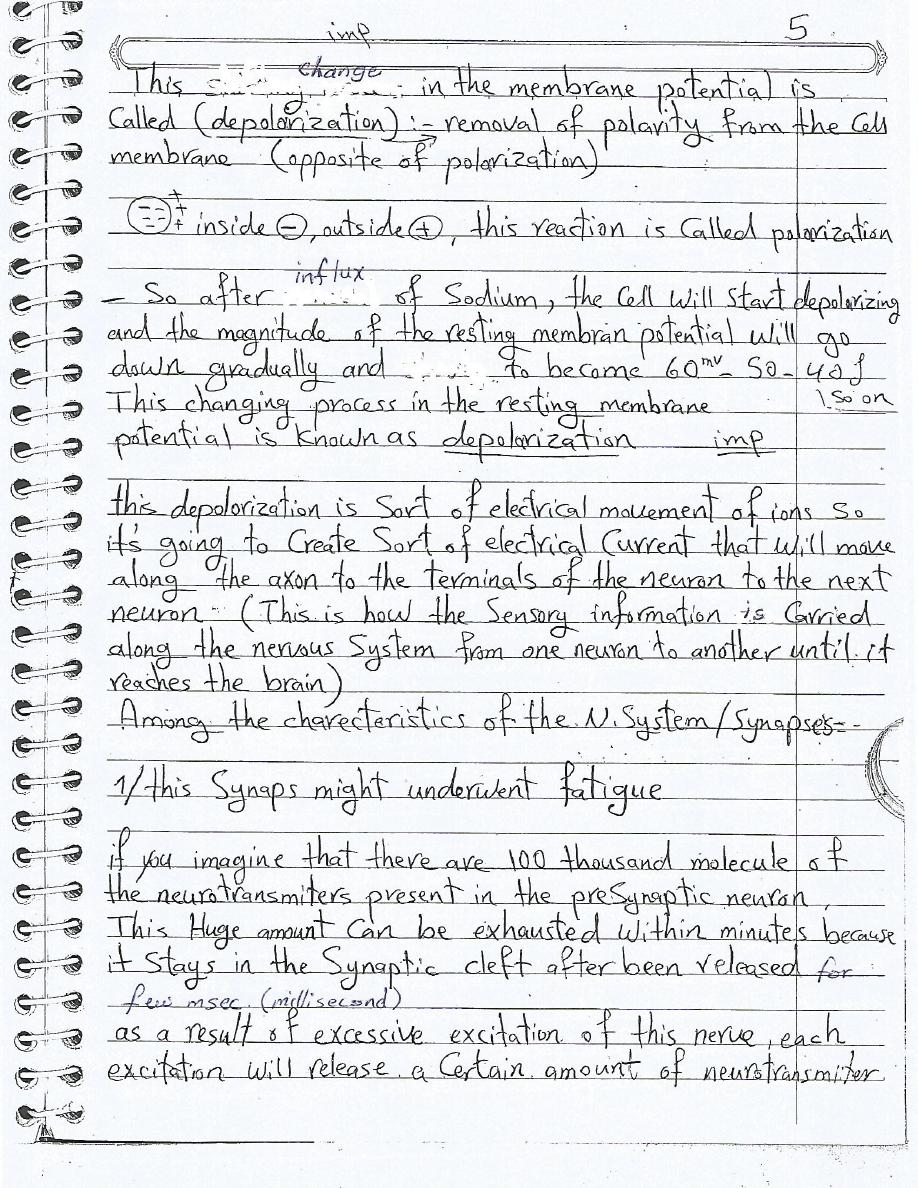 imp
5
This change in the membrane potential is
Called (depolorization) :- removal of polarity from the Cell
membrane (opposite of polorization)
inside ⊖, outside ⊕, this reaction is Called polorization
- So after influx of Sodium, the Cell will start depolorizing
and the magnitude of the resting membran potential will go
down gradually and to become 60mv - 50 - 40
So on
This changing process in the resting membrane
potential is Known as depolorization imp
this depolorization is Sort of electrical movement of ions so
it's going to Create Sort of electrical Current that will move
along the axon to the terminals of the neuron to the next
neuron - (This is how the Sensory information is Carried
along the nervous System from one neuron to another until it
reaches the brain)
Among the charecteristics of the N. System / Synapses=-
1/ this Synaps might underwent fatigue
if you imagine that there are 100 thousand molecule of
the neurotransmiters present in the preSynaptic neuron,
This Huge amount Can be exhausted within minutes because
it Stays in the Synaptic cleft after been released for
few msec. (millisecond)
as a result of excessive excitation of this nerve, each
excitation will release a Certain amount of neurotransmiter